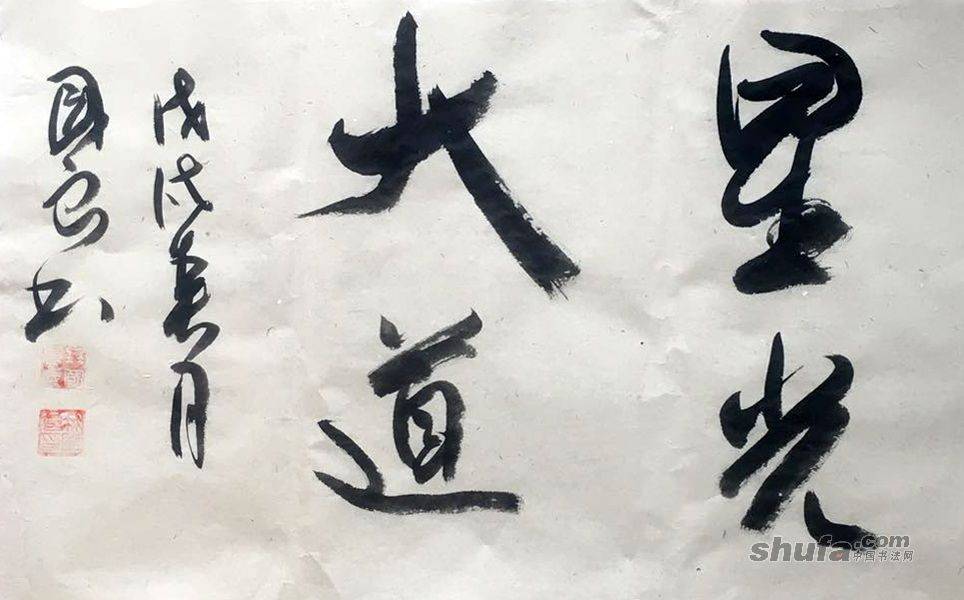 星光
大道
戊戌春月
国良书
shufa.com
中国书法网